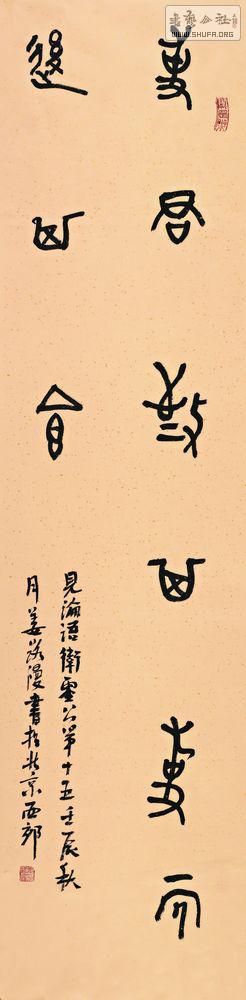 書法公社
WWW.SHUFA.ORG
事君敬其事而
後其食
見論語衛靈公第十五壬辰秋
月姜漫書於北京西郊